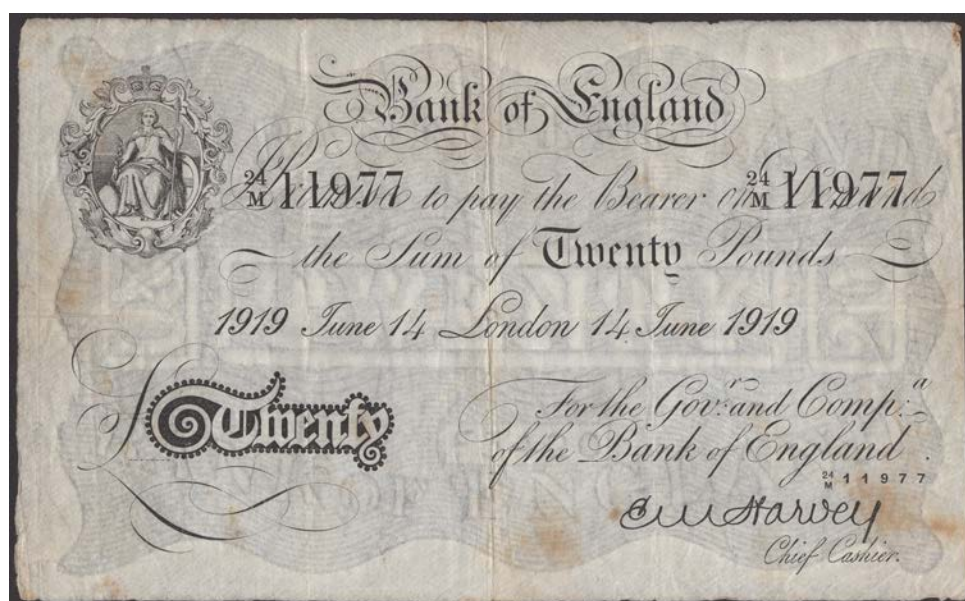 Bank of England
24/M 11977 24/M 11977
I Promise to pay the Bearer on Demand
the Sum of Twenty Pounds
1919 June 14 London 14 June 1919
Twenty
For the Govr: and Compa:
of the Bank of England.
24/M 11977
E M Harvey
Chief Cashier.